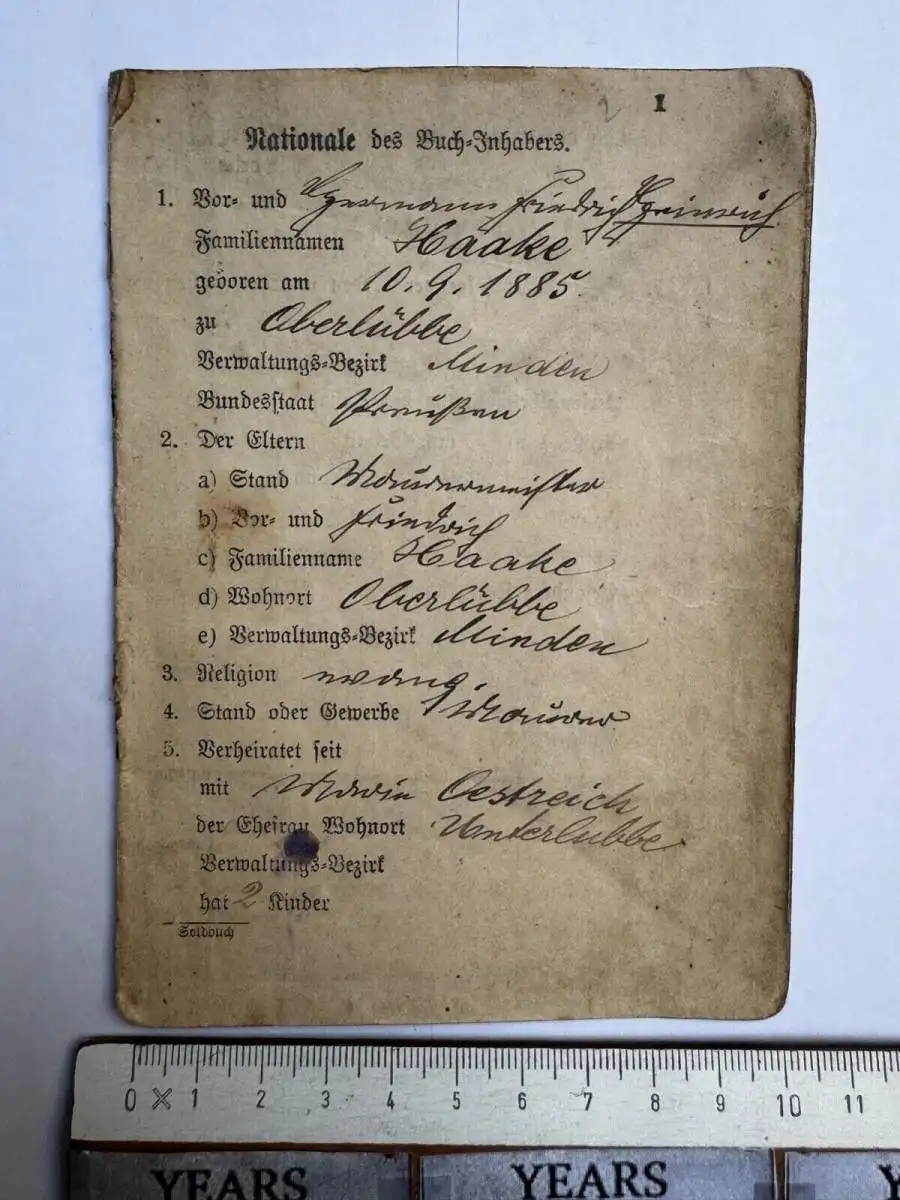 1
Nationale des Buch-Inhabers.
1. Vor- und Hermann Friedrich Heinrich
Familiennamen Haake
geboren am 10.9.1885.
zu Oberlübbe
Verwaltungs-Bezirk Minden
Bundesstaat Preußen
2. Der Eltern
a) Stand Maurermeister
b) Vor- und Friedrich
c) Familienname Haake
d) Wohnort Oberlübbe
e) Verwaltungs-Bezirk Minden
3. Religion evang.
4. Stand oder Gewerbe Maurer
5. Verheiratet seit
mit Marie Oestreich
der Ehefrau Wohnort Unterlübbe
Verwaltungs-Bezirk
hat 2 Kinder
Soldbuch
0 1 2 3 4 5 6 7 8 9 10 11
YEARS YEARS YE